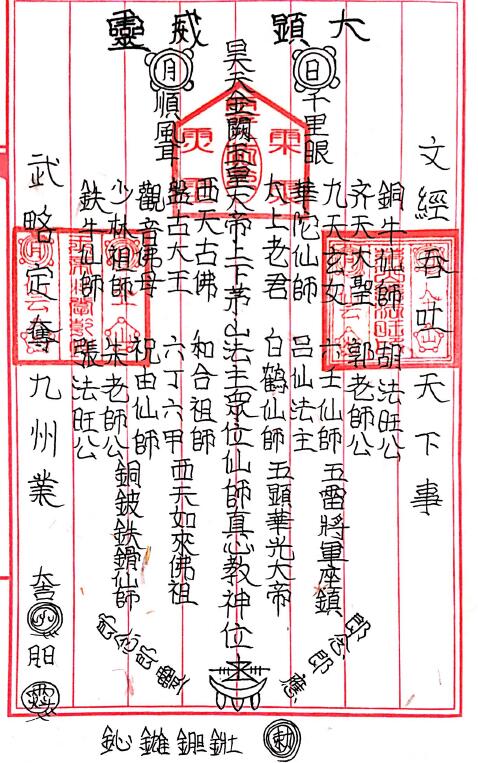 大顯威靈
文經吞吐天下事
銅牛仙師 胡法旺公
齊天大聖 郭老師公
日 千里眼
九天玄女 六壬仙師 五雷將軍座鎮
華陀仙師 呂仙法主
太上老君 白鶴仙師 五頭華光大帝
昊天金闕玉皇大帝上下茅山法主眾位仙師真心教神位
西天古佛 和合祖師
盤古大王 六丁六甲 西天如來佛祖
月 順風耳
觀音佛母 祝由仙師
少林祖師 朱老師公 銅鈸鉄鎖仙師
鉄牛仙師 張法旺公
武略定奪九州業
勅